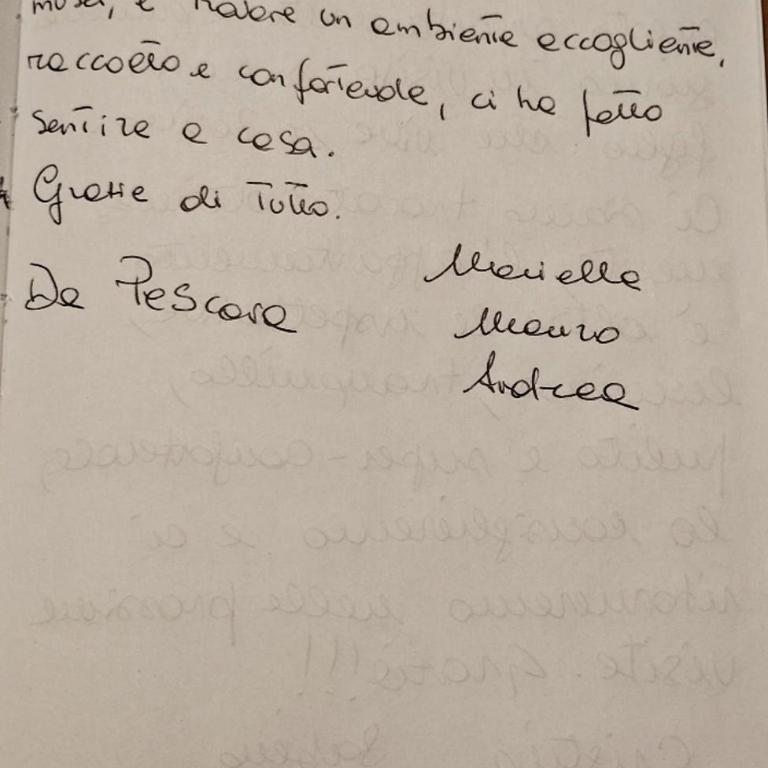 e trovare un ambiente accogliente,
raccolto e confortevole, ci ha fatto
sentire a casa.
Grazie di tutto.
Da Pescara
Mariella
Mauro
Andrea